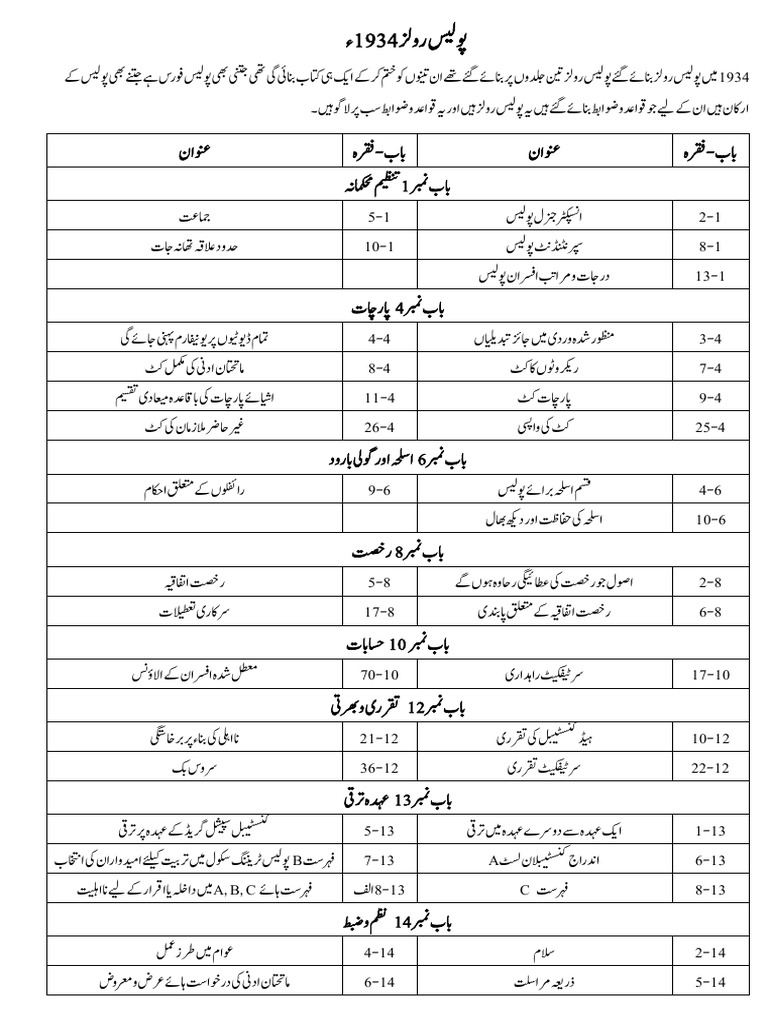 پولیس رولز 1934ء
1934 میں پولیس رولز بنائے گئے پولیس رولز تین جلدوں پر بنائے گئے تھے ان تینوں کو ختم کر کے ایک ہی کتاب بنائی گی تھی جتنی بھی پولیس فورس ہے جتنے بھی پولیس کے
ارکان ہیں ان کے لیے جو قواعد و ضوابط بنائے گئے ہیں یہ پولیس رولز ہیں اور یہ قواعد و ضوابط سب پر لاگو ہیں۔
باب-فقرہ عنوان باب-فقرہ عنوان
باب نمبر 1 تنظیم محکمانہ
2-1 انسپکٹر جنرل پولیس 5-1 جماعت
8-1 سپرنٹنڈنٹ پولیس 10-1 حدود علاقہ تھانہ جات
13-1 درجات و مراتب افسران پولیس
باب نمبر 4 پارچات
3-4 منظور شدہ وردی میں جائز تبدیلیاں 4-4 تمام ڈیوٹیوں پر یونیفارم پہنی جائے گی
7-4 ریکروٹوں کا کٹ 8-4 ماتحتان ادنی کی مکمل کٹ
9-4 پارچات کٹ 11-4 اشیائے پارچات کی باقاعدہ میعادی تقسیم
25-4 کٹ کی واپسی 26-4 غیر حاضر ملازمان کی کٹ
باب نمبر 6 اسلحہ اور گولی بارود
4-6 قسم اسلحہ برائے پولیس 9-6 رائفلوں کے متعلق احکام
10-6 اسلحہ کی حفاظت اور دیکھ بھال
باب نمبر 8 رخصت
2-8 اصول جو رخصت کی عطائیگی رحاوہ ہوں گے 5-8 رخصت اتفاقیہ
6-8 رخصت اتفاقیہ کے متعلق پابندی 17-8 سرکاری تعطیلات
باب نمبر 10 حسابات
17-10 سرٹیفکیٹ راہداری 70-10 معطل شدہ افسران کے الاؤنس
باب نمبر 12 تقرری و بھرتی
10-12 ہیڈ کنسٹیبل کی تقرری 21-12 نااہلی کی بناء پر برخاستگی
22-12 سرٹیفکیٹ تقرری 36-12 سروس بک
باب نمبر 13 عہدہ ترقی
1-13 ایک عہدہ سے دوسرے عہدہ میں ترقی 5-13 کنسٹیبل سپیشل گریڈ کے عہدہ پر ترقی
6-13 اندراج کنسٹیبلان لسٹ A 7-13 فہرست B پولیس ٹریننگ سکول میں تربیت کیلئے امیدواران کی انتخاب
8-13 فہرست C 8-13الف فہرست ہائے A, B, C میں داخلہ یا اقرار کے لیے نااہلیت
باب نمبر 14 نظم و ضبط
2-14 سلام 4-14 عوام میں طرز عمل
5-14 ذریعہ مراسلت 6-14 ماتحتان ادنی کی درخواست ہائے عرض و معروض